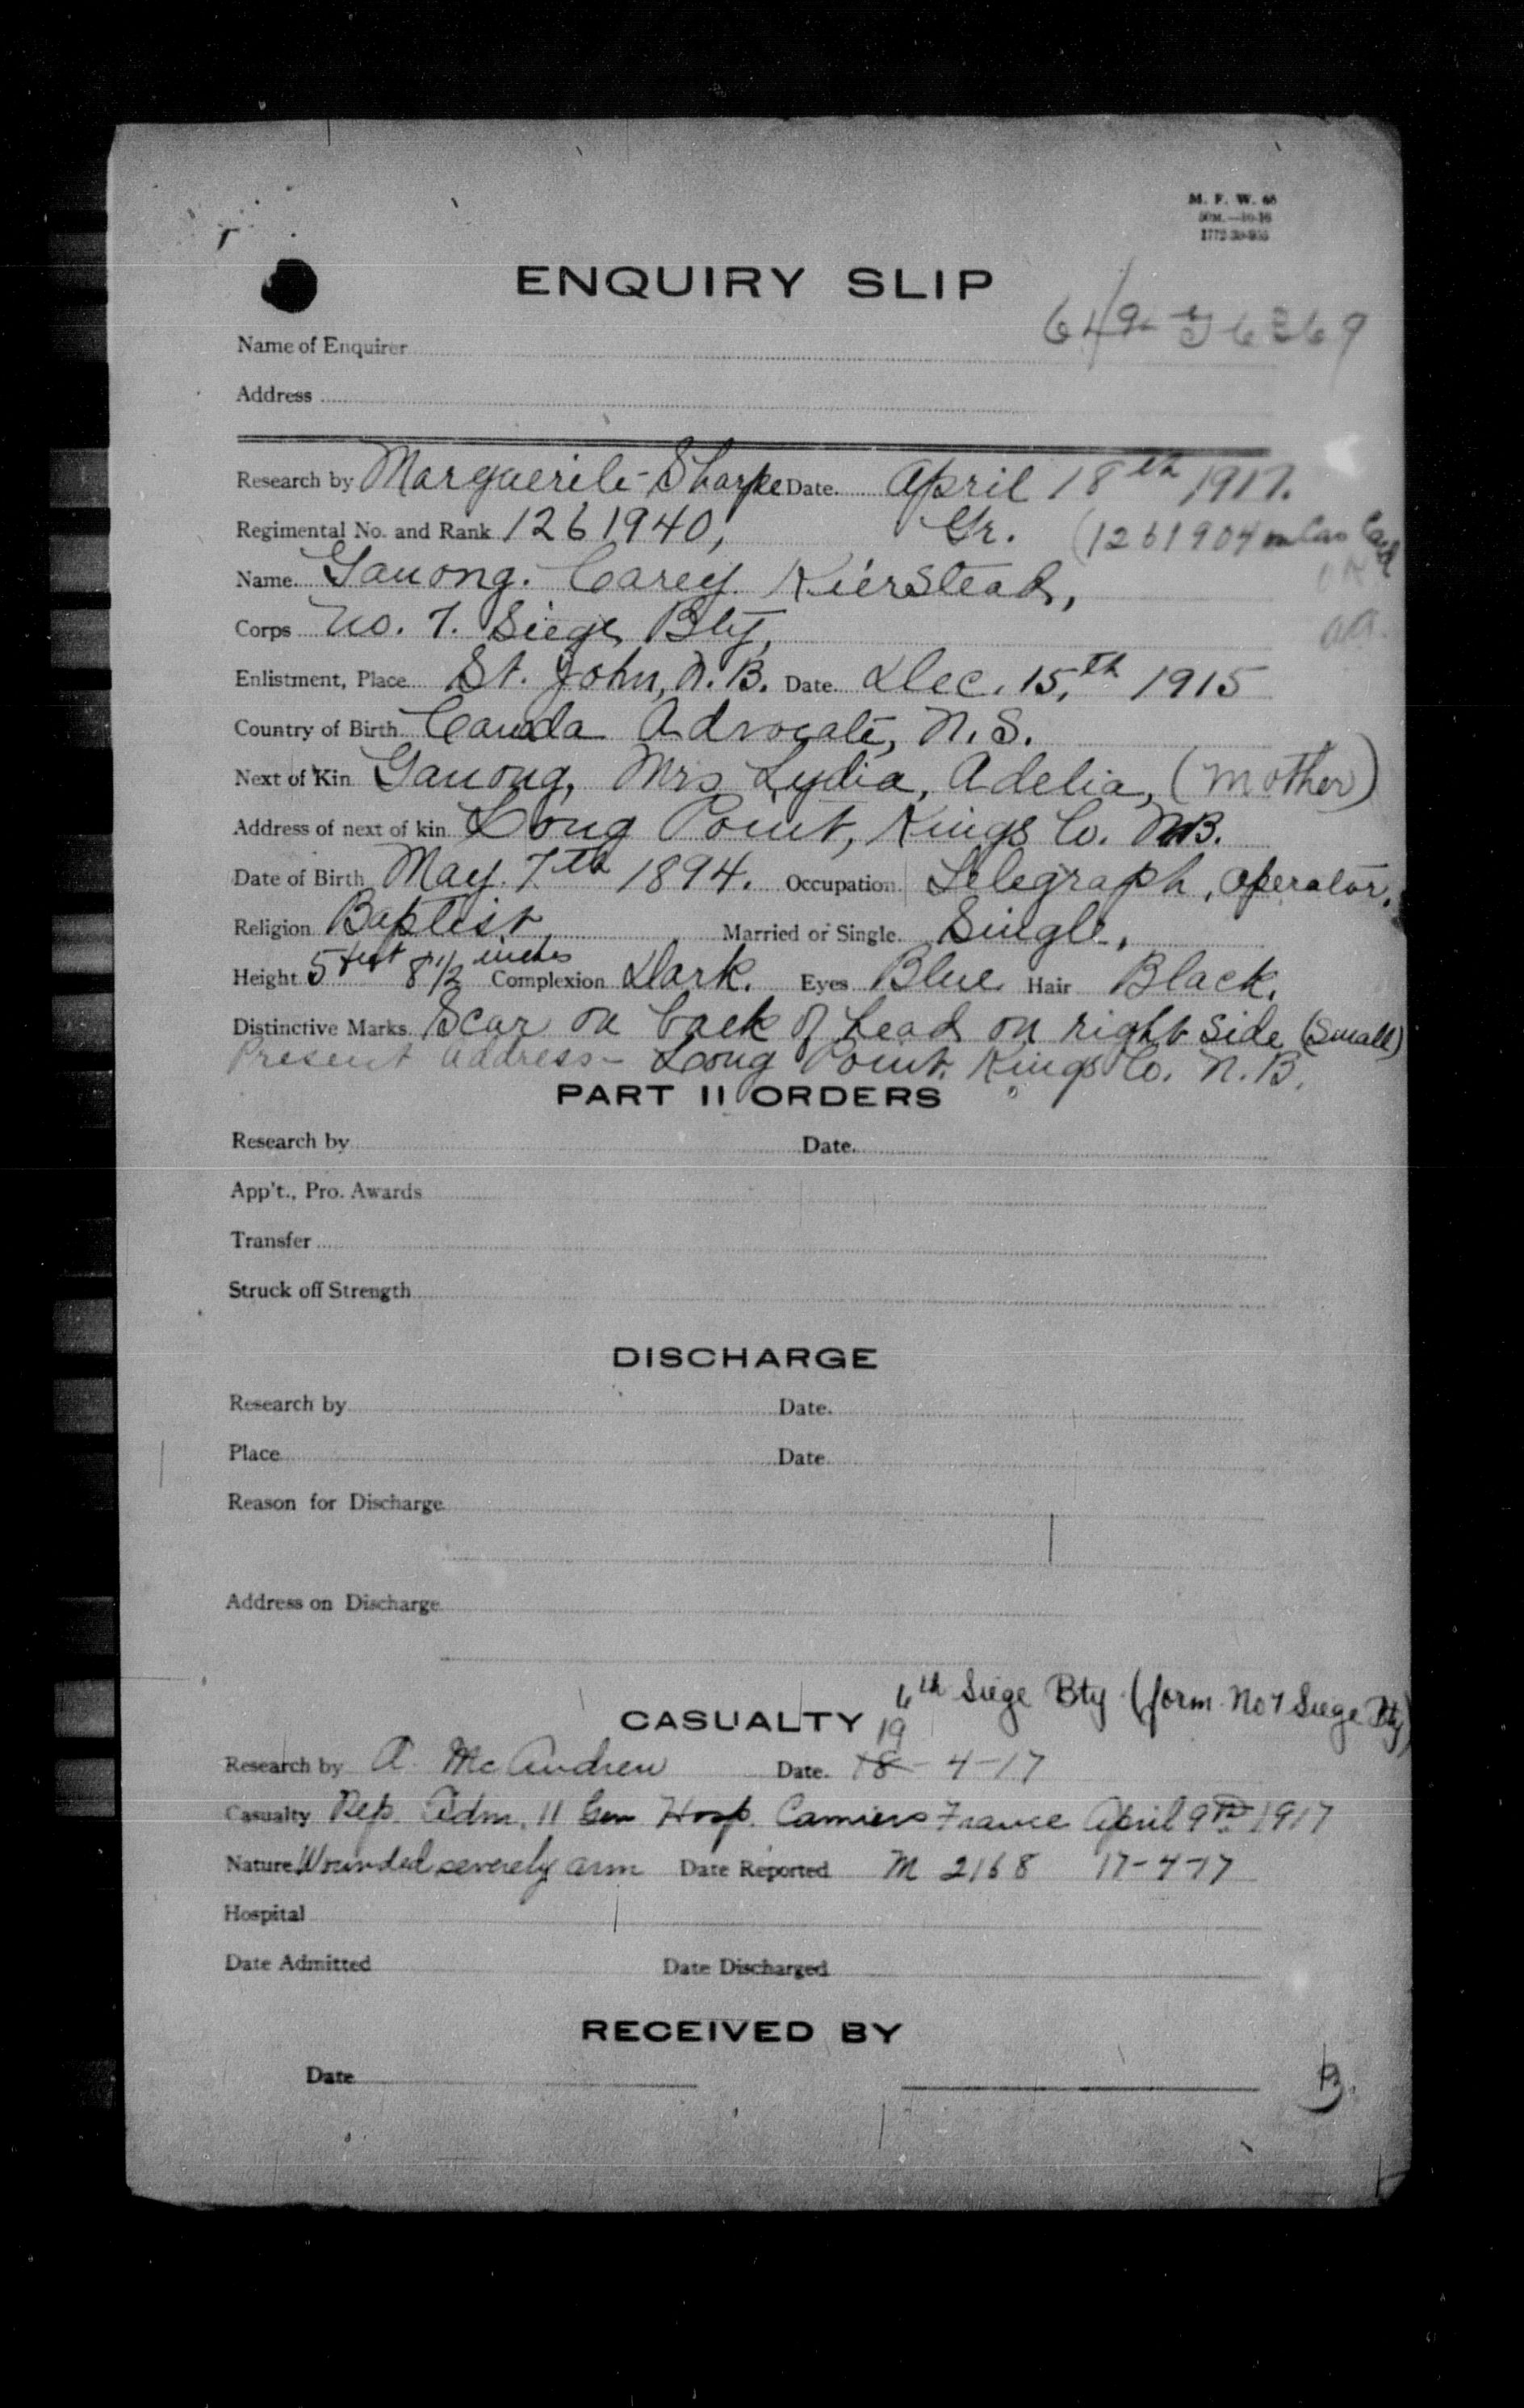 M. F. W. 66
50M.—10-16
ENQUIRY SLIP
649-G-6269
Name of Enquirer
Address
Research by Marguerite Sharpe Date. April 18th 1917.
Regimental No. and Rank 1261940, Gr. (1261904 on Cas Card
Name. Ganong. Carey. Kierstead,
Corps No. 7. Siege Bty,
Enlistment, Place St. John, N.B. Date. Dec. 15,th 1915
Country of Birth Canada Advocate, N.S.
Next of Kin Ganong, Mrs Lydia, Adelia, (Mother)
Address of next of kin Long Point, Kings Co. N.B.
Date of Birth May. 7th 1894. Occupation Telegraph, operator.
Religion Baptist, Married or Single. Single,
Height 5 feet 8 1/2 inches Complexion Dark. Eyes Blue Hair Black.
Distinctive Marks. Scar on back of head on right side (Small)
Present address - Long Point, Kings Co. N.B.
PART II ORDERS
Research by Date.
App't., Pro. Awards
Transfer
Struck off Strength
DISCHARGE
Research by Date.
Place Date
Reason for Discharge
Address on Discharge
6th Siege Bty (form. No 7 Siege Bty)
CASUALTY
19
Research by A. McAndrew Date. 18-4-17
Casualty Rep. Adm. 11 Gen Hosp. Camiers France April 9th 1917
Nature Wounded severely arm Date Reported M 2168 17-4-17
Hospital
Date Admitted Date Discharged
RECEIVED BY
Date
B.